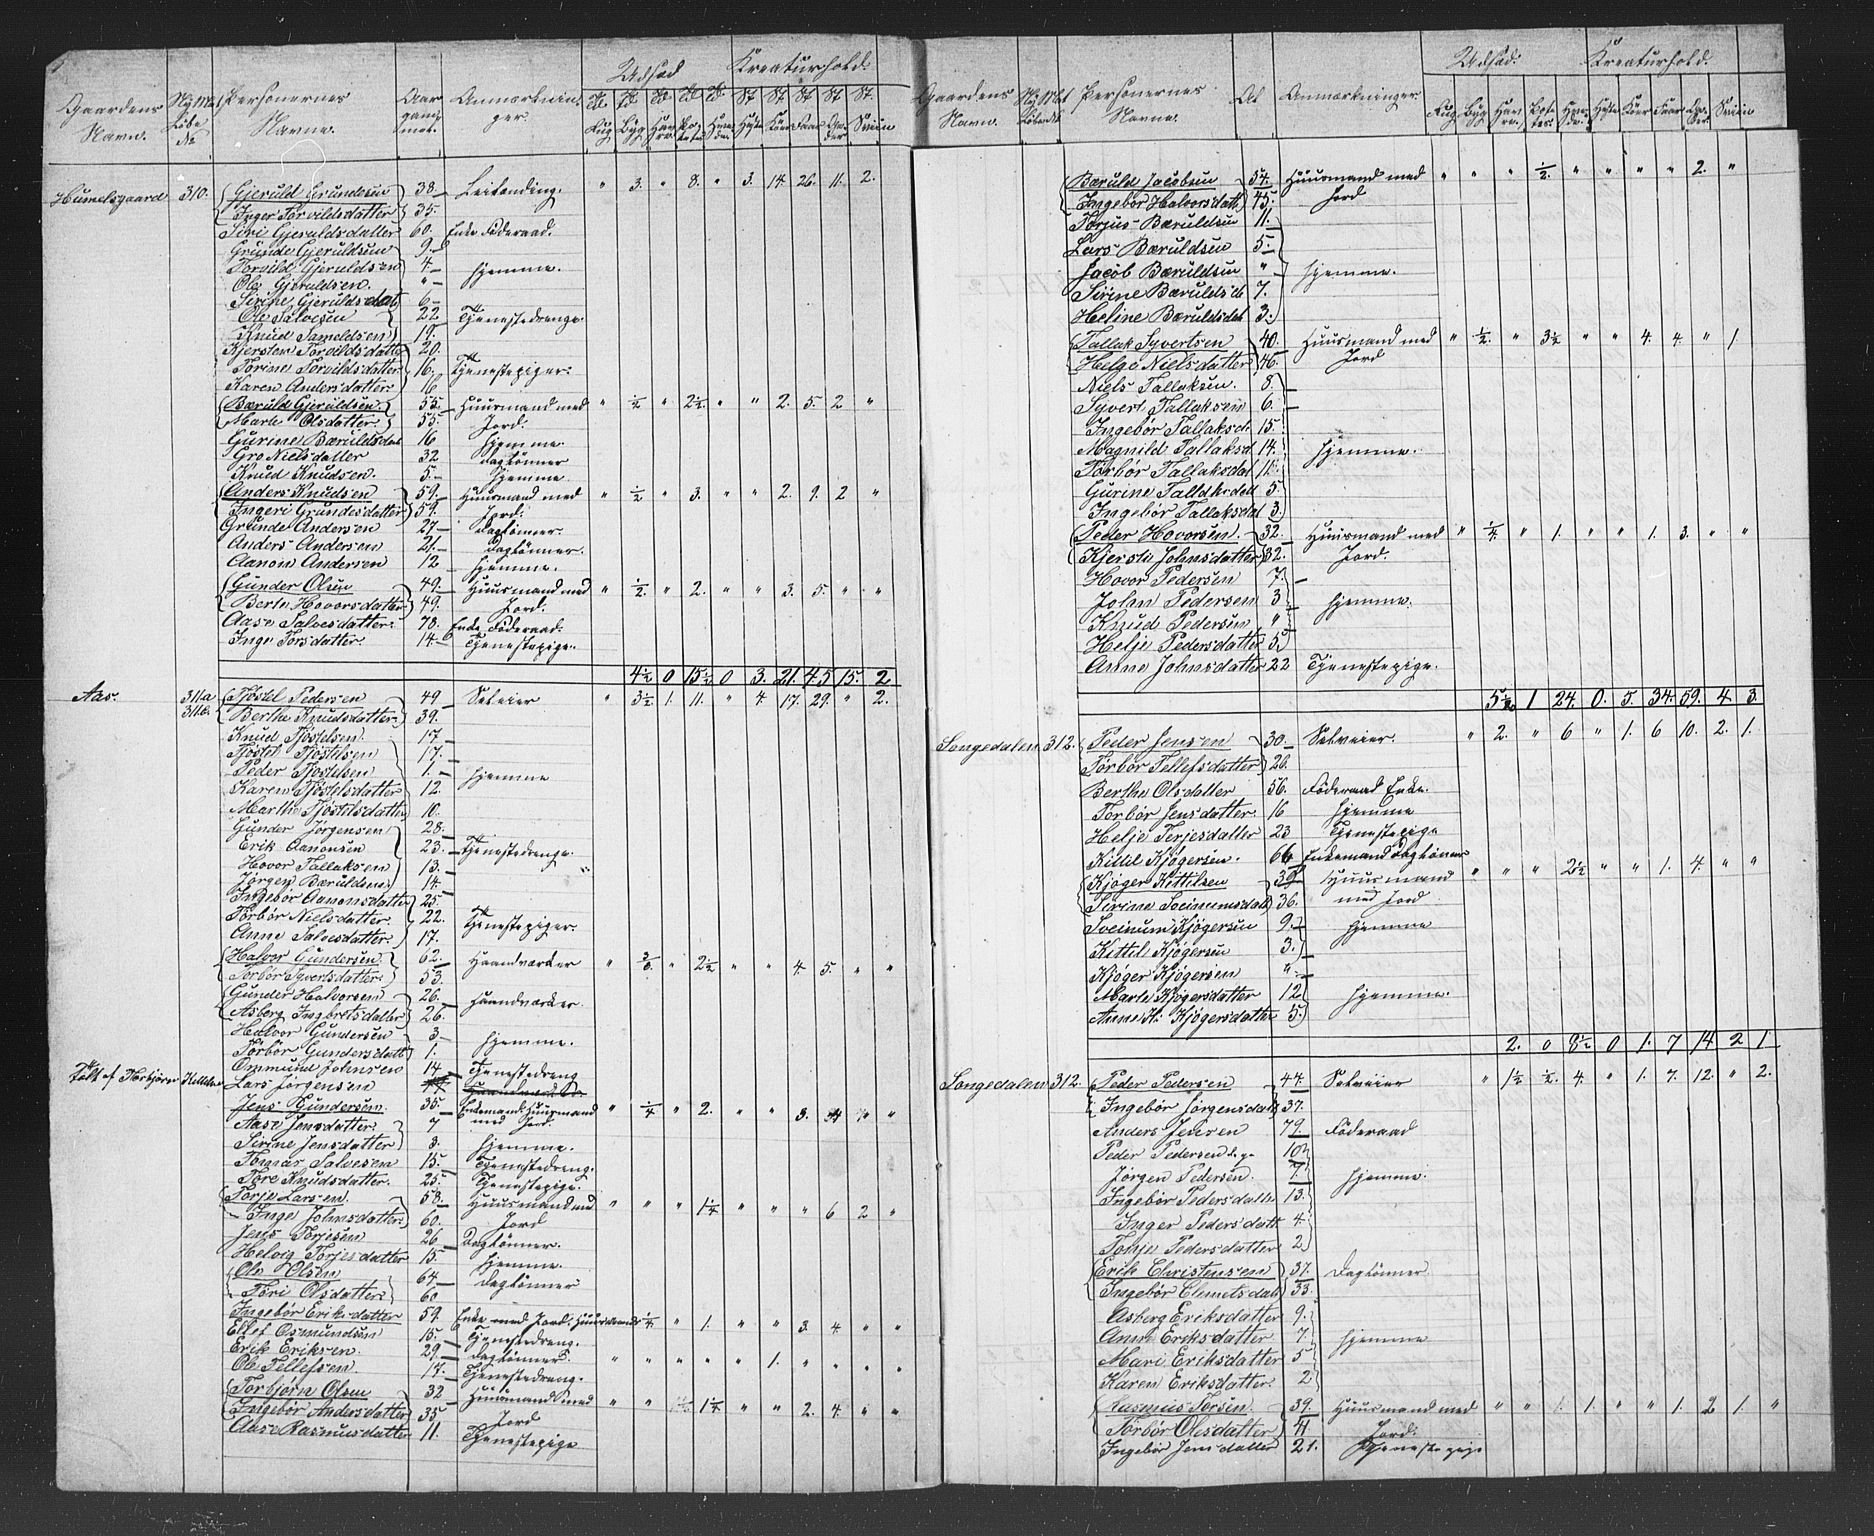 Gaardens Navn. Ny Mat Løbe № Personernes Navne. Aargang mot. Anmærkninger. Udsæd Kreaturhold.
Rug Byg Havre Potetes Hveede. Heste Køer Faar Geder Sviin
Humelsgaard 310. Gjeruld Grundesen 38. Leilænding. " 3. " 8. " 3. 14. 26. 11. 2.
Inger Torvildsdatter 35.
Siri Gjeruldsdatter 60. Enke Føderaad.
Grunde Gjeruldsen 9.
Torvild Gjeruldsen 4 hjemme.
Ole Gjeruldsen. "
Sirine Gjeruldsdat 6
Ole Salvesen 22 Tjenestedrenge.
Knud Sameldsen 19.
Kjersten Torvildsdatter 20.
Torine Torvildsdatter 16. Tjenestepiger.
Karen Andersdatter. 16
Bæruld Gjeruldsen. 55. Huusmand med Jord. " ½ " 2½ " " 2. 5. 2 "
Marte Olsdatter. 55.
Gurine Bæruldsdat 16 hjemme.
Gro Nielsdatter 32 Daglønner
Knud Knudsen. 5. hjemme
Anders Knudsen 59. Huusmand med Jord. " ½ " 3. " " 2. 9. 2 "
Ingeri Grundesdatter 59.
Grunde Andersen 27 Daglønner.
Anders Andersen 21. Daglønner.
Aanon Andersen 12 hjemme.
Gunder Olsen 49. Huusmand med Jord. " ½. " 2. " " 3. 5. " "
Berte Hovorsdatter 49.
Aase Salvesdatter. 78. Enke Føderaad.
Inge Torsdatter. 14. Tjenestepige.
4½ 0 15½ 0 3. 21. 45 15. 2
Aas. 311a 311b. Tjøstel Pedersen 49 Selveier " 3½. 1. 11. " 4. 17. 29. " 2.
Berthe Knudsdatter. 39.
Knud Tjøstelsen. 17
Tjøstel Tjøstelsen 17.
Peder Tjøstelsen 1. hjemme
Karen Tjøstelsdatter 12.
Marthe Tjøstelsdatter 10.
Gunder Jørgensen 28.
Erik Aanonsen 23. Tjenestedrenge.
Hovor Tallaksen 13.
Jørgen Bæruldsen. 14.
Ingebør Aanonsdatter 25.
Torbør Nielsdatter. 22. Tjenestepiger.
Anne Salvesdatter. 17.
Halvor Gundersen. 62. Haandværker " " 2½ " " 4. 5. " "
Torbør Syvertsdatter. 53.
Gunder Halvorsen 26. Haandværker.
Asberg Ingbretsdatter 26.
Halvor Gundersen 3 hjemme.
Torbør Gundersdatt 1.
Ommund Johnsen 14 Tjenestedreng
Lars Jørgensen
Jens Gundersen. 35. Enkemand. Huusmand med Jord. " ¼ " 2. " " 3. 4 " "
Aase Jensdatter. 7
Sirine Jensdatter 3. hjemme.
Tomas Salvesen 15. Tjenestedreng.
Tore Knudsdatter. 25. Tjenestepige.
Torje Larsen. 58. Huusmand med Jord " " " 1¼ " " " 6 2 "
Inge Johnsdatter. 60.
Jens Torjesen 26 Daglønner.
Helvig Torjesdatter 15 hjemme.
Ole Olsen 64 Daglønner
Tori Olsdatter. 60
Ingebør Eriksdatter 59. Enke med Jord. Huusmands ¼. " 1. " " 3. 4. " "
Ellef Osmundsen 15. Tjenestedreng.
Erik Eriksen. 29. Daglønner. " " " " " 1. " " " "
Ole Tellefsen 17. Tjenestedreng.
Torbjørn Olsen 32 Huusmand med Jord " " 1¼ " " 2. 4. " "
Ingebør Andersdatter 35
Aase Rasmusdatter 11. Tjenestepige
Gaardens Navn. Ny Mat Løbe № Personernes Navne. Al Anmærkninger. Udsæd. Kreaturhold.
Rug Byg Havre. Potetes. Hveede. Heste Køer Faar Geder. Sviin
Bæruld Jacobsen 54. Huusmand med Jord " " " ½ " " " " 2. "
Ingebør Halvorsdatt 45.
Torjus Bæruldsen 11.
Lars Bæruldsen 5.
Jacob Bæruldsen " hjemme.
Sirine Bæruldsd 7.
Heline Bæruldsdat 3.
Tallak Syvertsen 40. Huusmand med Jord " ½. " 3½ " " 4. 4. " 1.
Helge Nielsdatter 46.
Niels Tallaksen. 8.
Syvert Tallaksen 6.
Ingebør Tallaksd. 15.
Magnild Tallaksd 14. hjemme.
Torbør Tallaksdat
Gurine Tallaksdatt 5.
Ingebør Tallaksdat 3.
Peder Hovorsen. 32. Huusmand med Jord. " ¼. " 1. " " 1. 3. " "
Kjersti Johnsdatter 32.
Hovor Pedersen 7.
Johan Pedersen 3 hjemme.
Knud Pedersen "
Helje Pedersdatter 5
Anne Johnsdatter 22 Tjenestepige.
1 24. 0. 5. 34. 59. 4 3.
Songedalen 312. Peder Jensen 30. Selveier. " 2. " 6 " 1. 6 10. 2. 1.
Torbør Tellefsdatter 26.
Berthe Olsdatter 56. Føderaad Enke.
Torbør Jensdatter. 16 hjemme
Helje Terjesdatter 23 Tjenestepige
Kittil Kjøgersen. 64 Enkemand Dagløner
Kjøger Kittilsen 39 Huusmand med Jord " " " 2½ " " 1. 4. " "
Sirine Soeinumsdatt 36.
Soeinum Kjøgersen 9. hjemme
Kittil Kjøgersen 3.
Kjøger Kjøgersen "
Marte Kjøgersdatter 12 hjemme.
Anne K. Kjøgersdatter 5.
2. 0 8½ 0 1. 7 14 2 1.
Songedalen 312. Peder Pedersen 44. Selveier " 1½ ½. 4. " 1. 7. 12. " 2.
Ingebør Jørgensdatt 37.
Anders Jensen 79. Føderaad
Peder Pedersen 10
Jørgen Pedersen. 7. hjemme.
Ingebør Pedersdatte 13.
Inger Pedersdatt 4.
Tonje Pedersdatter 2
Erik Christensen 37. Daglønner.
Ingebør Clemetsdat 33.
Asberg Eriksdatter 9.
Anne Eriksdatter 7 hjemme
Mari Eriksdatter 5
Karen Eriksdatter. 2
Rasmus Torsen. 39. Huusmand med Jord. " " 1. 1. " " 1. 2 1. "
Torbør Olesdatter 41
Ingebør Jensdatter 21. Tjenestepige